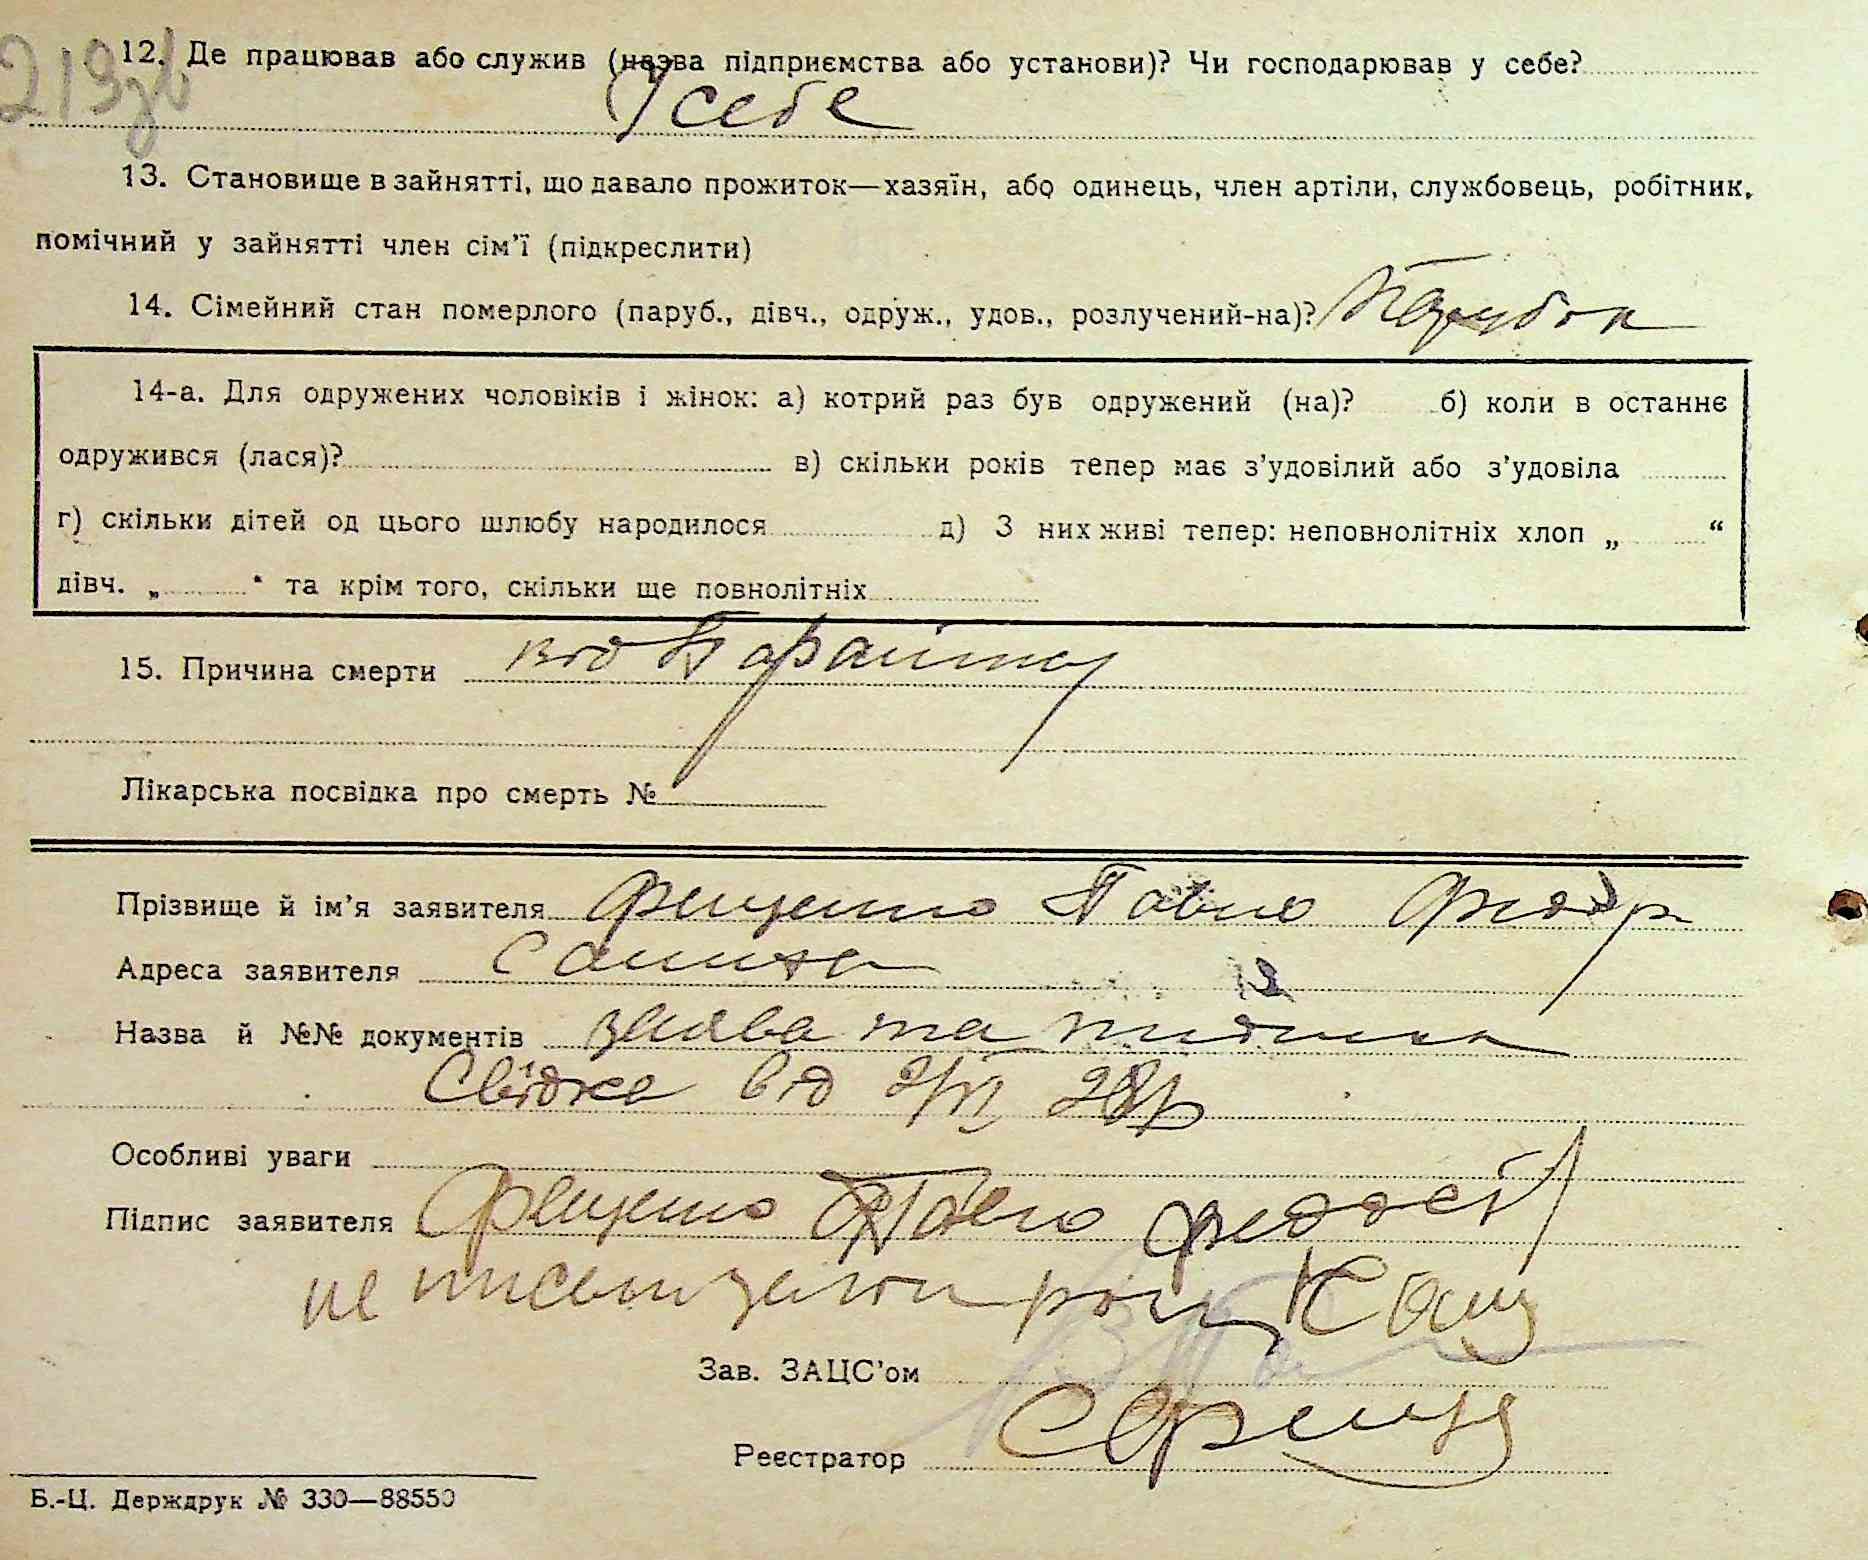 219зв
12. Де працював або служив (назва підприємства або установи)? Чи господарював у себе?
У себе
13. Становище в зайнятті, що давало прожиток—хазяїн, або одинець, член артіли, службовець, робітник,
помічний у зайнятті член сім'ї (підкреслити)
14. Сімейний стан померлого (паруб., дівч., одруж., удов., розлучений-на)? Парубок
14-а. Для одружених чоловіків і жінок: а) котрий раз був одружений (на)? б) коли в останнє
одружився (лася)? в) скільки років тепер має з'удовілий або з'удовіла
г) скільки дітей од цього шлюбу народилося д) З них живі тепер: неповнолітніх хлоп „ “
дівч. „ “ та крім того, скільки ще повнолітніх
15. Причина смерти від
Лікарська посвідка про смерть №
Прізвище й ім'я заявителя Фещенко Павло Федор
Адреса заявителя
Назва й №№ документів заява та
Свідка від 2/VI 28р
Особливі уваги
Підпис заявителя Фещенко Павло Федосів
не письменен
Зав. ЗАЦС'ом
Реєстратор
Б.-Ц. Держдрук № 330—88550